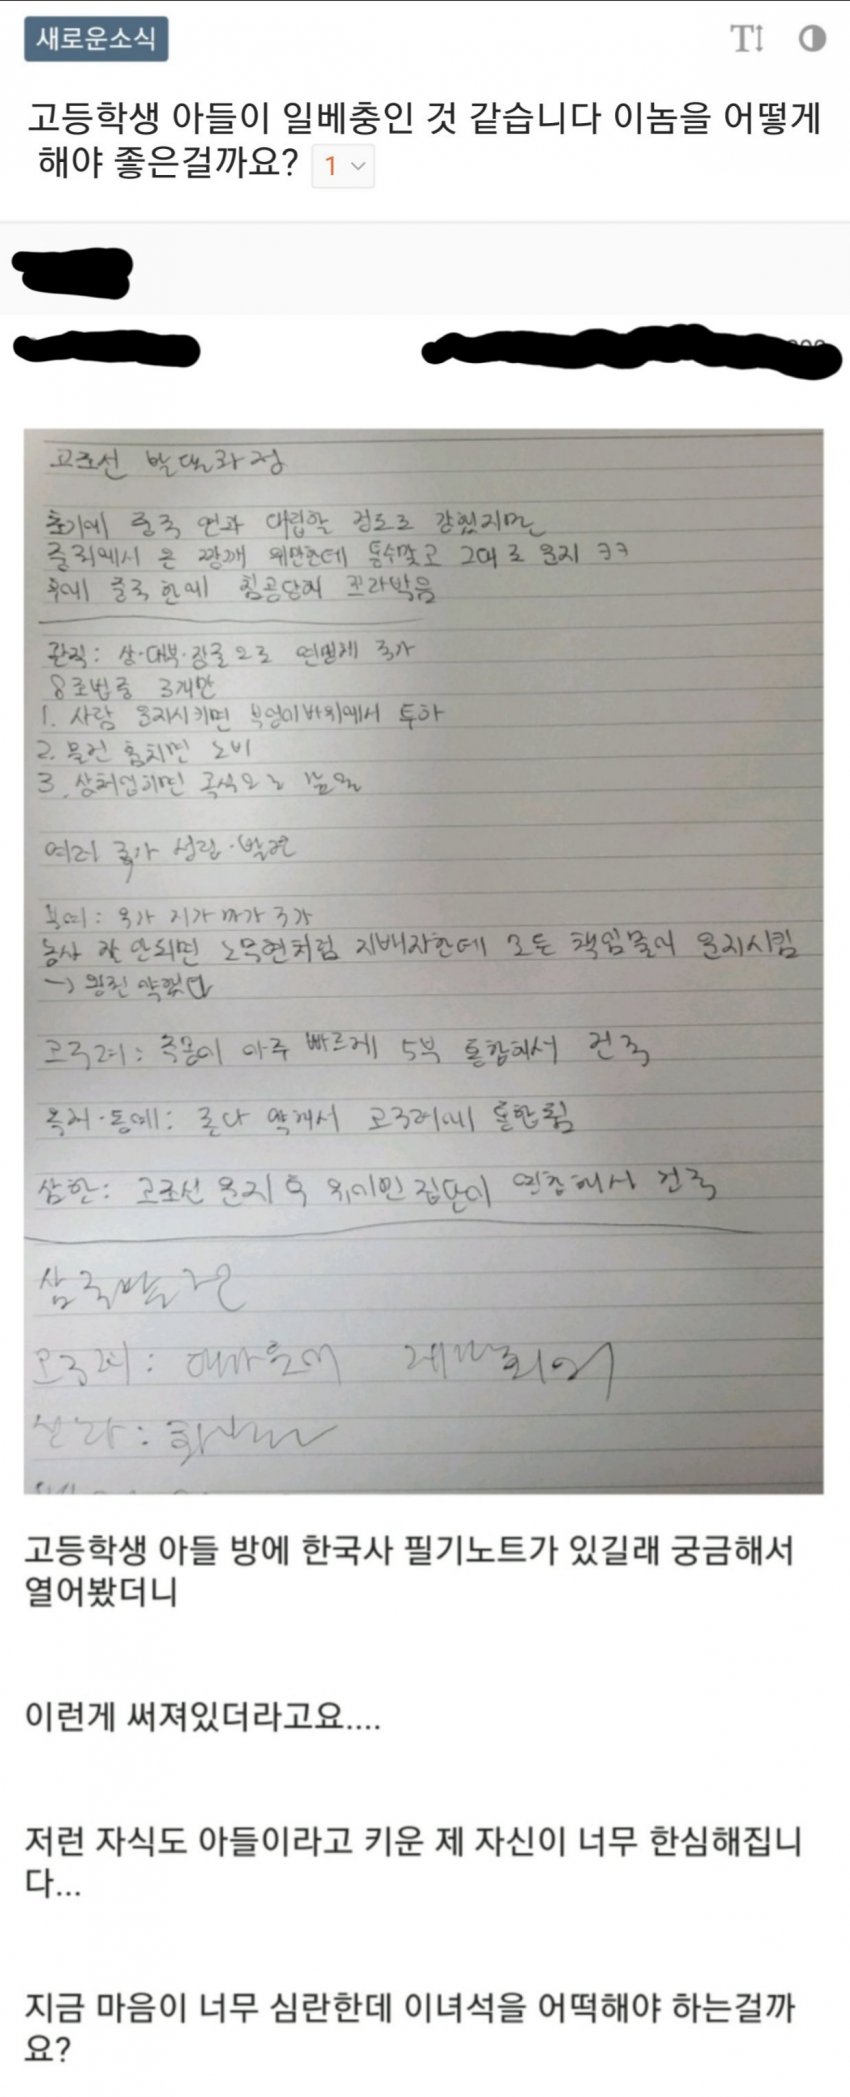 새로운소식
고등학생 아들이 일베충인 것 같습니다 이놈을 어떻게
해야 좋은걸까요? 1
고조선 발달과정
초기에 중국 연과 대립할 정도로 강했지만
중국에서 온 짱깨 위만한테 통수맞고 그대로 운지 ㅋㅋ
후에 중국 한에 침공당해 꼬라박음
관직: 상·대부·장군으로 연맹체 국가
8조법중 3개만
1. 사람 운지시키면 부엉이바위에서 투하
2. 물건 훔치면 노비
3. 상처입히면 곡식으로
여러 국가 성립·발전
부여:
농사 잘 안되면 노무현처럼 지배자한테 모든 책임물어 운지시킴
→ 왕권 약했다
고구려: 주몽이 아주 빠르게 5부 통합해서 건국
옥저·동예: 둘다 약해서 고구려에 통합됨
삼한: 고조선 운지 후 유이민 집단이 연합해서 건국
삼국발전
고구려:
신라:
고등학생 아들 방에 한국사 필기노트가 있길래 궁금해서
열어봤더니
이런게 써져있더라고요....
저런 자식도 아들이라고 키운 제 자신이 너무 한심해집니
다...
지금 마음이 너무 심란한데 이녀석을 어떡해야 하는걸까
요?